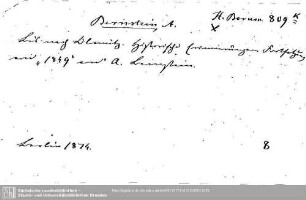 Bernstein, A.
H. Boruss. 809 K
X
Bis nach Olmütz. Historische Erinnerungen. Fortsetzung
von „1849“ von A. Bernstein.
Berlin 1874.
8
Sächsische Landesbibliothek -
Staats- und Universitätsbibliothek Dresden